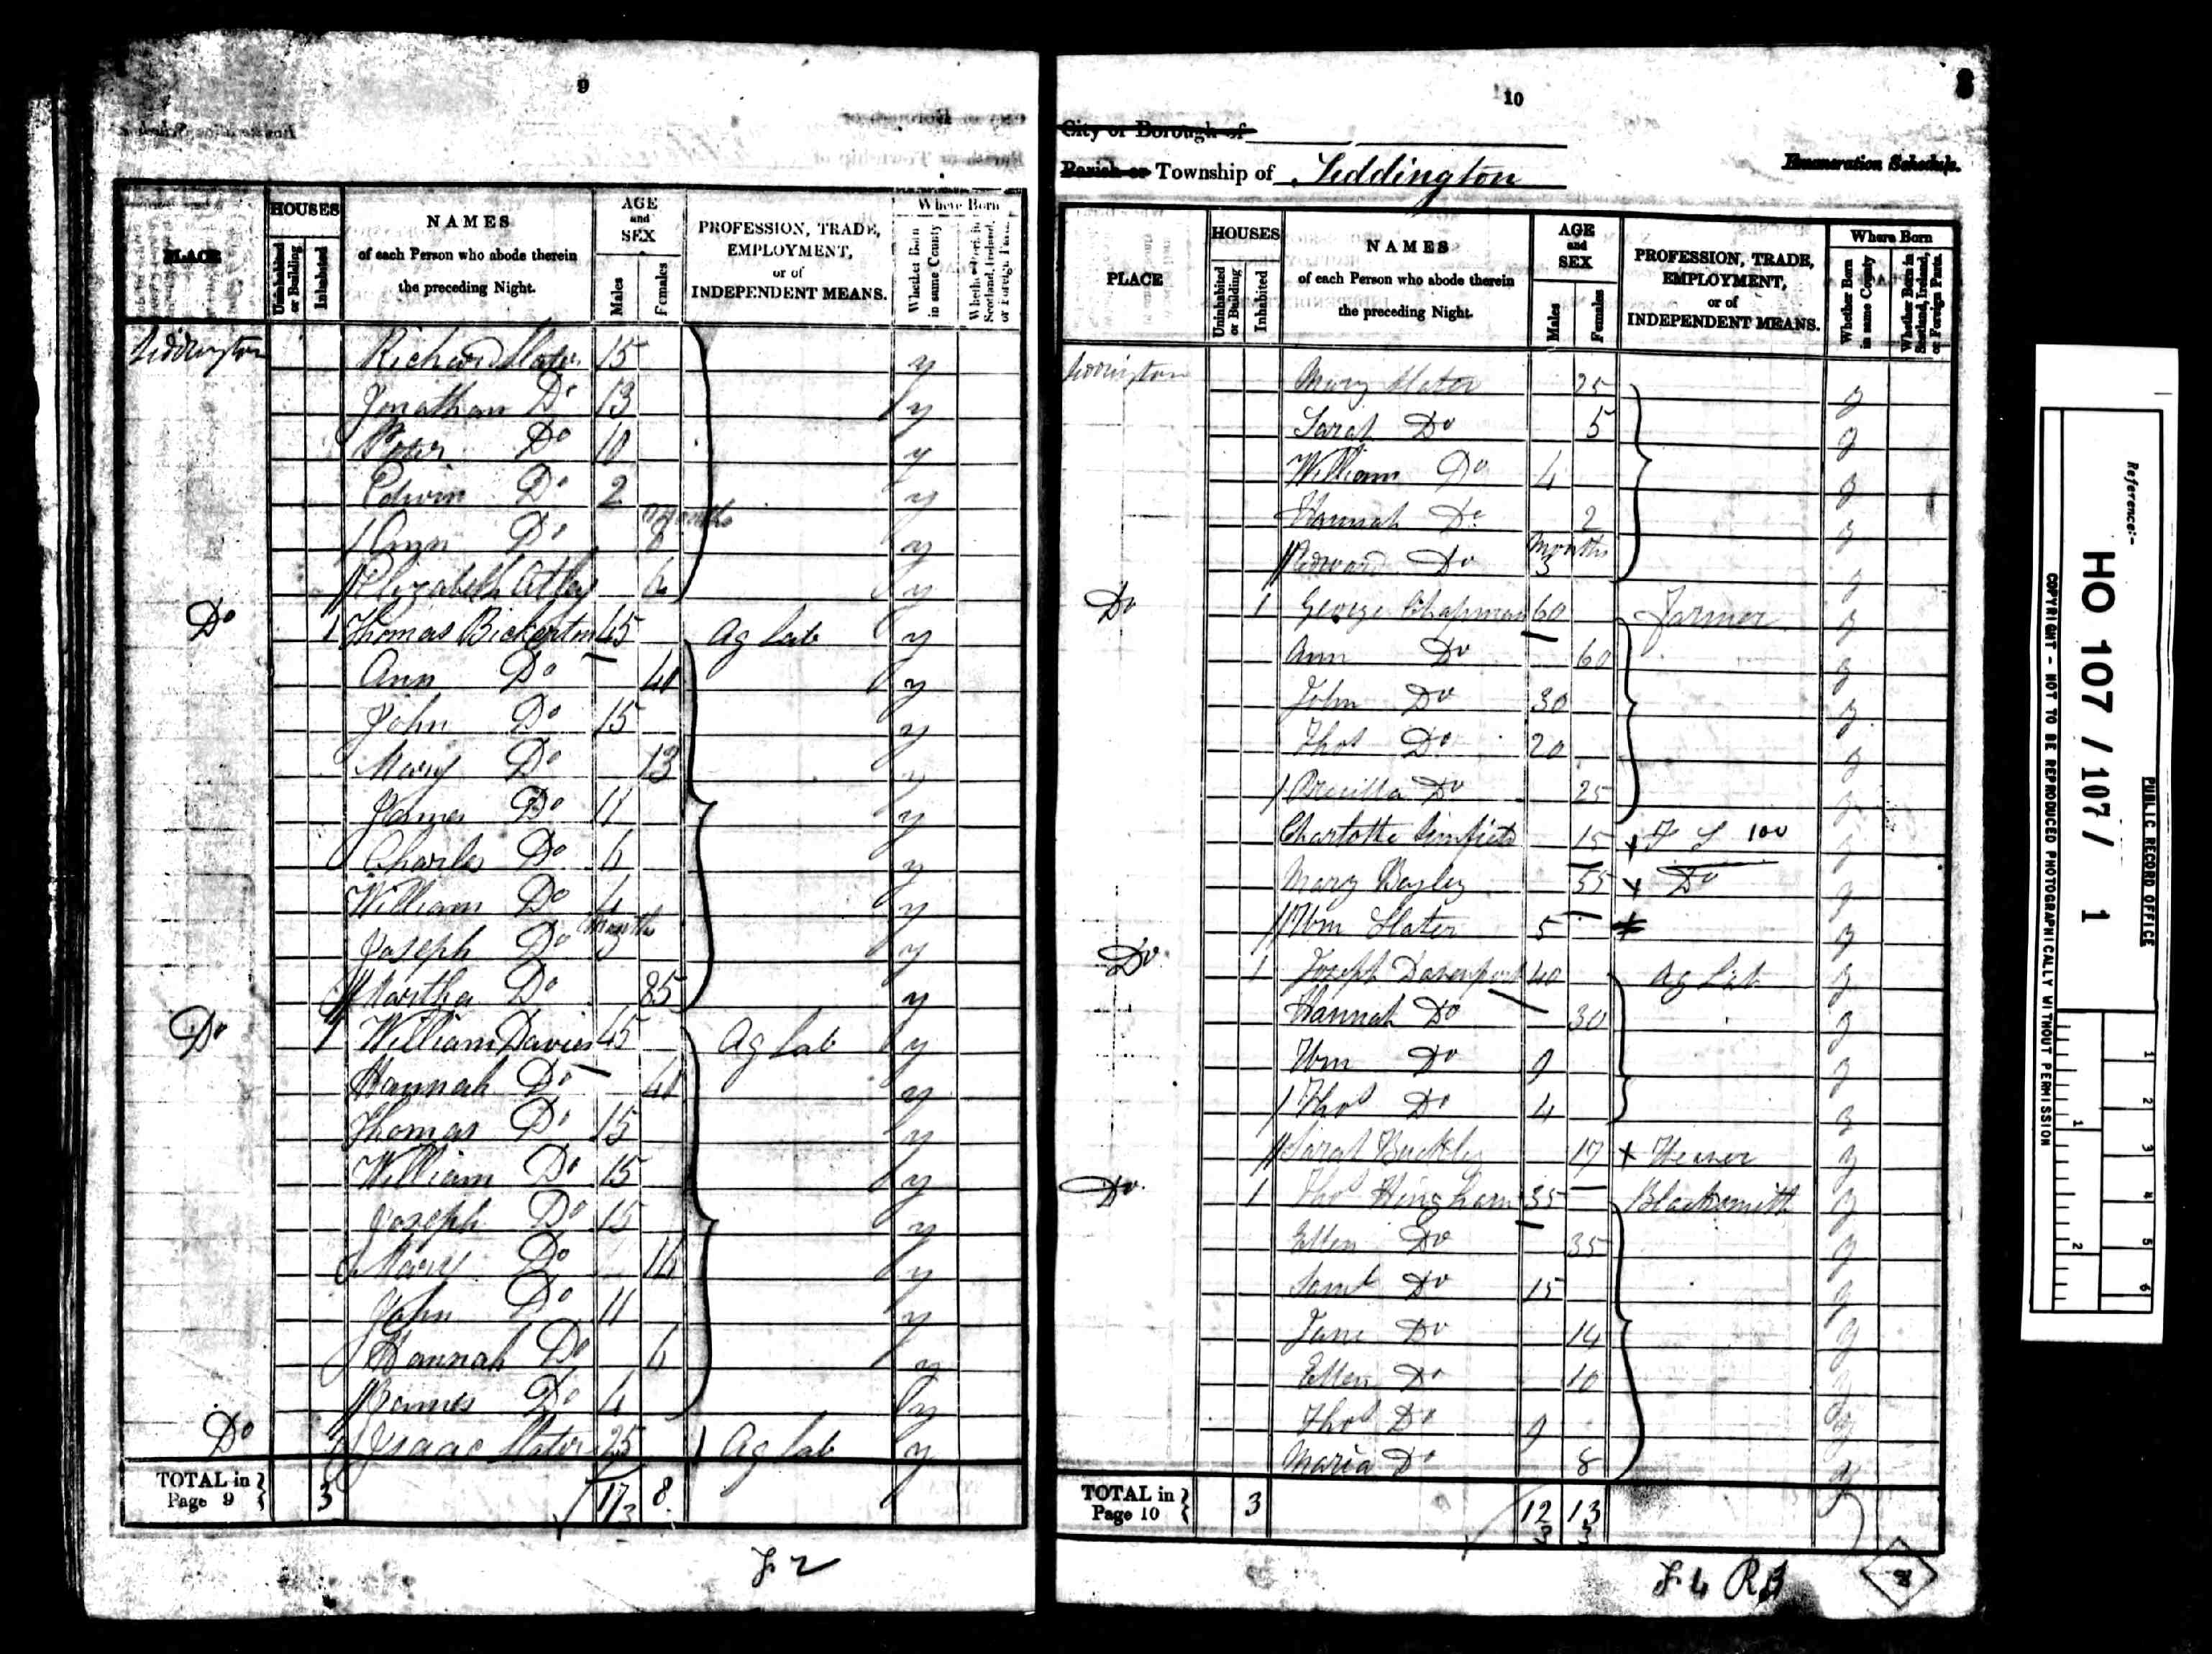 9
PLACE
HOUSES
Uninhabited or Building
Inhabited
NAMES
of each Person who abode therein
the preceding Night.
AGE and SEX
Males
Females
PROFESSION, TRADE,
EMPLOYMENT,
or of
INDEPENDENT MEANS.
Where Born
Whether Born in same County
Whether Born in Scotland, Ireland, or Foreign Parts.
Siddington Richard Slater 15 y
Jonathan Do 13 y
Peter Do 10 y
Edwin Do 2 y
Ann Do 8 months y
Elizabeth 6 y
Do 1 Thomas Bickerton 45 Ag Lab y
Ann Do 40 y
John Do 15 y
Mary Do 13 y
James Do 11 y
Charles Do 6 y
William Do 4 y
Joseph Do months y
Martha Do 85 y
Do 1 William Davies 45 Ag Lab y
Hannah Do 40 y
Thomas Do 15 y
William Do 15 y
Joseph Do 15 y
Mary Do 14 y
John Do 11 y
Hannah Do 6 y
James Do 4 y
Do 1 Isaac Slater 25 Ag Lab y
TOTAL in Page 9 3 17 8
3
F 2
10
City or Borough of
Parish or Township of Siddington
Enumeration Schedule.
PLACE
HOUSES
Uninhabited or Building
Inhabited
NAMES
of each Person who abode therein
the preceding Night.
AGE and SEX
Males
Females
PROFESSION, TRADE,
EMPLOYMENT,
or of
INDEPENDENT MEANS.
Where Born
Whether Born in same County
Whether Born in Scotland, Ireland, or Foreign Parts.
Siddington Mary Slater 25 y
Sarah Do 5 y
William Do 4 y
Hannah Do 2 y
Edward Do 3 months y
Do 1 George Chapman 60 Farmer y
Ann Do 60 y
John Do 30 y
Thos Do 20 y
Precilla Do 25 y
Charlotte 15 x F S 100 y
Mary Bayley 55 x Do y
Wm Slater 5 y
Do 1 Joseph Davenport 40 Ag Lab y
Hannah Do 30 y
Wm Do 9 y
Thos Do 4 y
Sarah Buckley 17 x Weaver y
Do 1 Thos Hingham 35 Blacksmith y
Ellen Do 35 y
Saml Do 15 y
Jane Do 14 y
Ellen Do 10 y
Thos Do 9 y
Maria Do 8 y
TOTAL in Page 10 3 12 13
3 3
F 4
Reference:-
HO 107 / 107 / 1
PUBLIC RECORD OFFICE
COPYRIGHT - NOT TO BE REPRODUCED PHOTOGRAPHICALLY WITHOUT PERMISSION
1 2 3 4 5 6
1 2